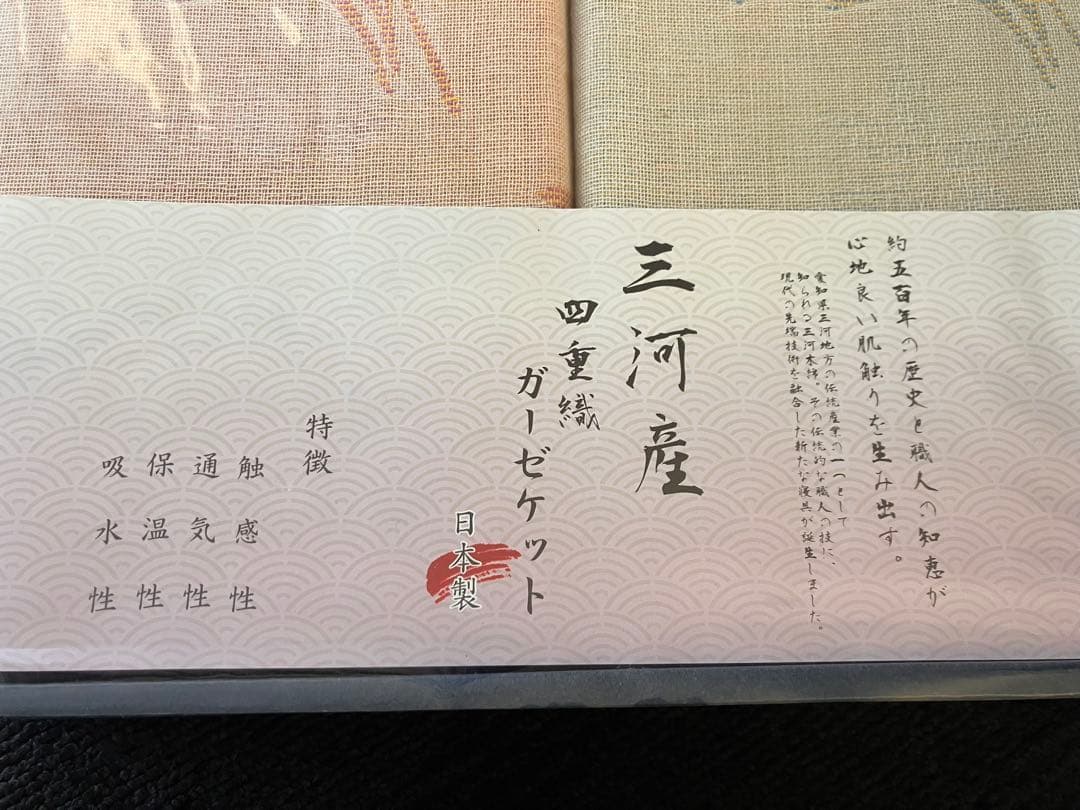 約五百年の歴史と職人の知恵が
心地良い肌触りを生み出す。
愛知県三河地方の伝統産業の一つとして
知られる三河木綿。その伝統的な職人の技に、
現代の先端技術を融合した新たな寝具が誕生しました。
三河産
四重織
ガーゼケット
日本製
特徴
触感性
通気性
保温性
吸水性